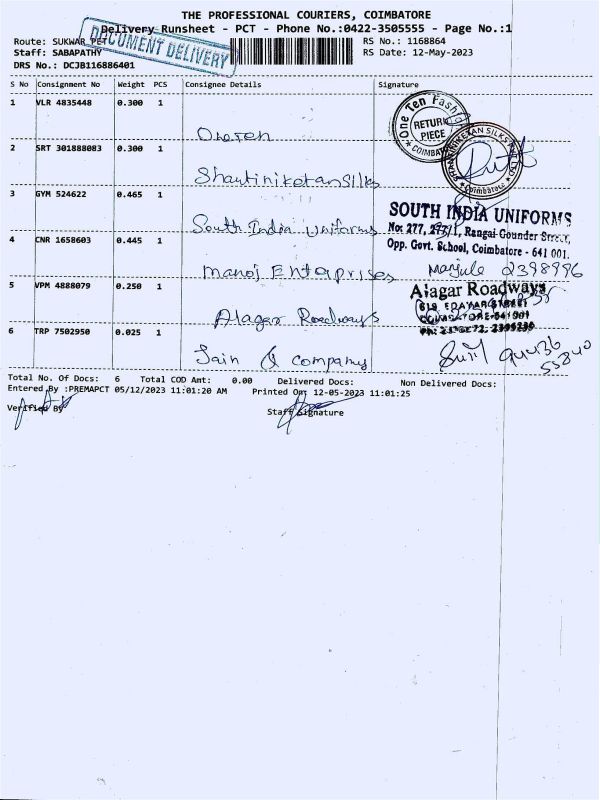 THE PROFESSIONAL COURIERS, COIMBATORE
Delivery Runsheet - PCT - Phone No.:0422-3505555 - Page No.:1
Route: SUKWAR PET
DOCUMENT DELIVERY
RS No.: 1168864
Staff: SABAPATHY
RS Date: 12-May-2023
DRS No.: DCJB116886401
S No Consignment No Weight PCS Consignee Details Signature
1 VLR 4835448 0.300 1
One Ten Fashion
RETURN PIECE
COIMBATORE
2 SRT 301888083 0.300 1
Shantiniketan Silks
SHANTINIKETAN SILKS PVT LTD
Coimbatore
3 GYM 524622 0.465 1
South India Uniforms
SOUTH INDIA UNIFORMS
No: 277, Rangai Gounder Street,
Opp. Govt. School, Coimbatore - 641 001.
4 CNR 1658603 0.445 1
Manoj Enterprises
Manjule 2398996
5 VPM 4888079 0.250 1
Alagar Roadways
Alagar Roadways
6 TRP 7502950 0.025 1
Jain & Company
Sunil 94436
55840
Total No. Of Docs: 6 Total COD Amt: 0.00 Delivered Docs: Non Delivered Docs:
Entered By :PREMAPCT 05/12/2023 11:01:20 AM Printed On: 12-05-2023 11:01:25
Verified By
Staff Signature